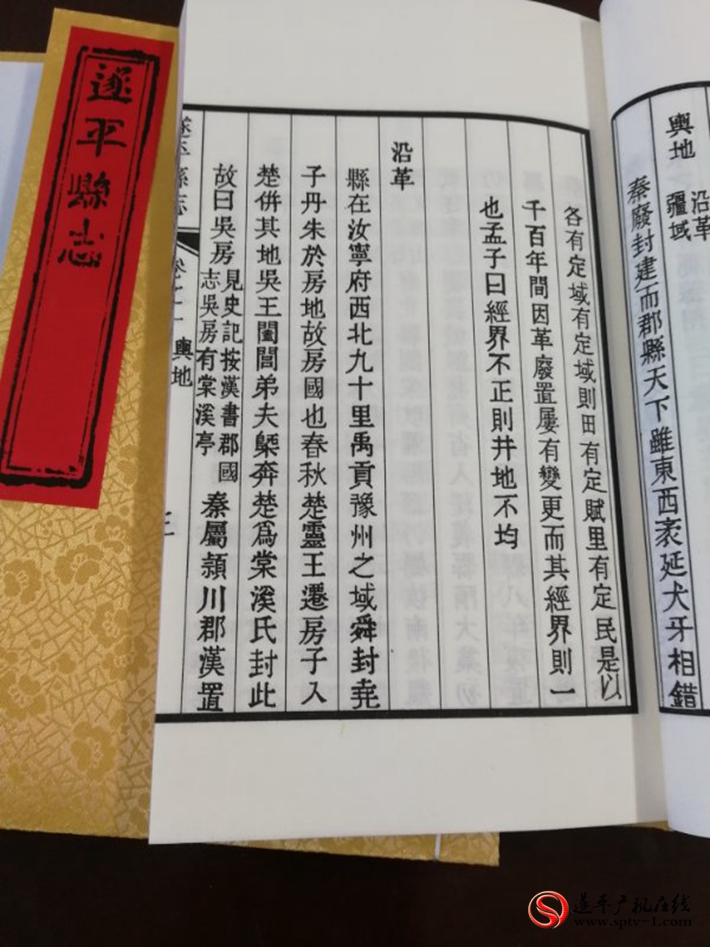 遂平縣志
輿地
沿革
疆域
秦廢封建而郡縣天下雖東西袤延犬牙相錯
各有定域有定域則田有定賦里有定民是以
千百年間因革廢置屢有變更而其經界則一
也孟子曰經界不正則井地不均
沿革
縣在汝寧府西北九十里禹貢豫州之域舜封堯
子丹朱於房地故房國也春秋楚靈王遷房子入
楚併其地吳王闔閭弟夫槩奔楚爲棠溪氏封此
故曰吳房
見史記按漢書郡國
志吳房有棠溪亭
秦屬潁川郡漢置
遂平縣志
卷之
輿地
三
遂平广视在线
www.sptv-1.com